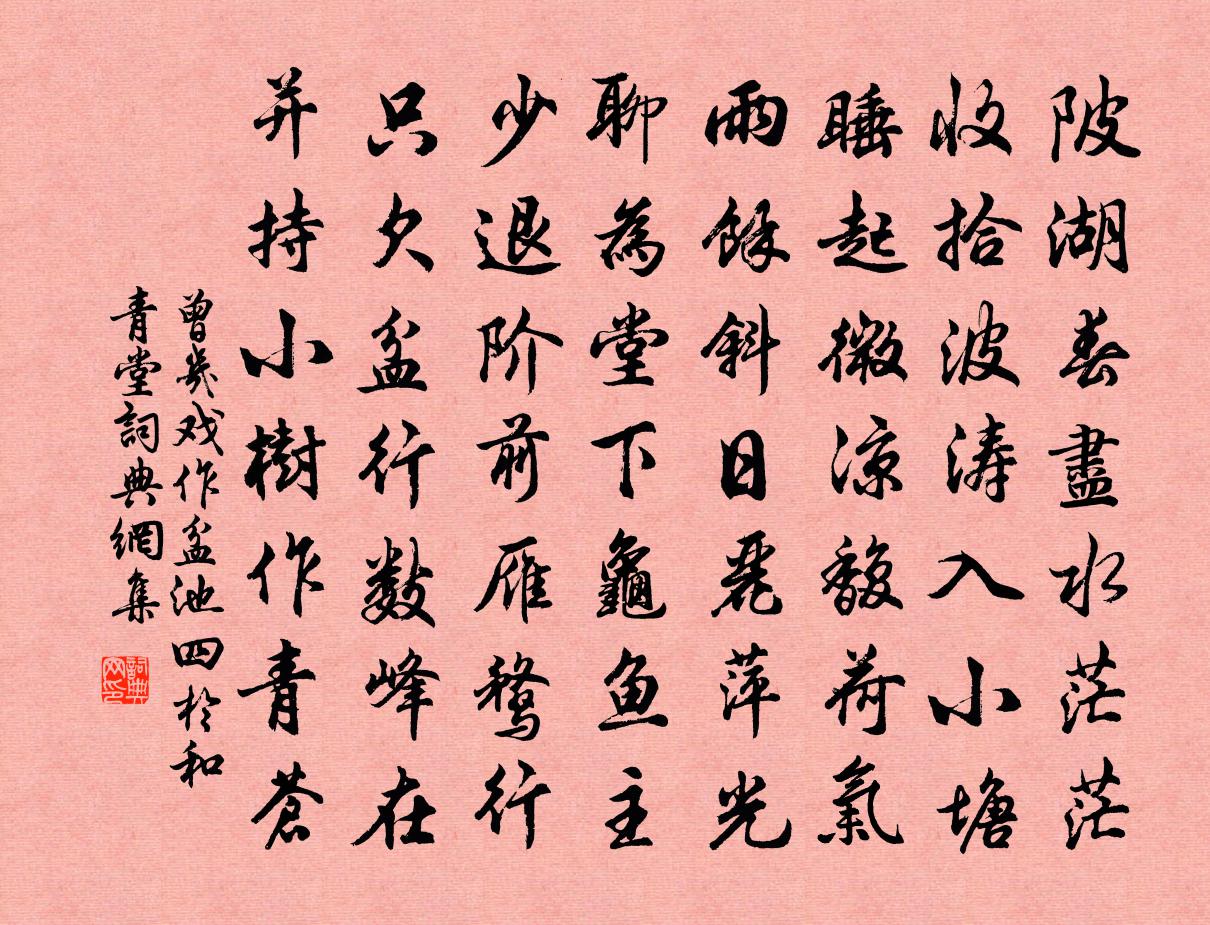 陂湖春盡水茫茫
收拾波涛入小塘
睡起微涼馥荷氣
雨餘斜日麗萍光
聊為堂下龜鱼主
少退阶前雁鹜行
只欠盆行數峰在
并持小樹作青蒼
曾幾戏作盆池四於和
青堂詞典網集
詞典网印